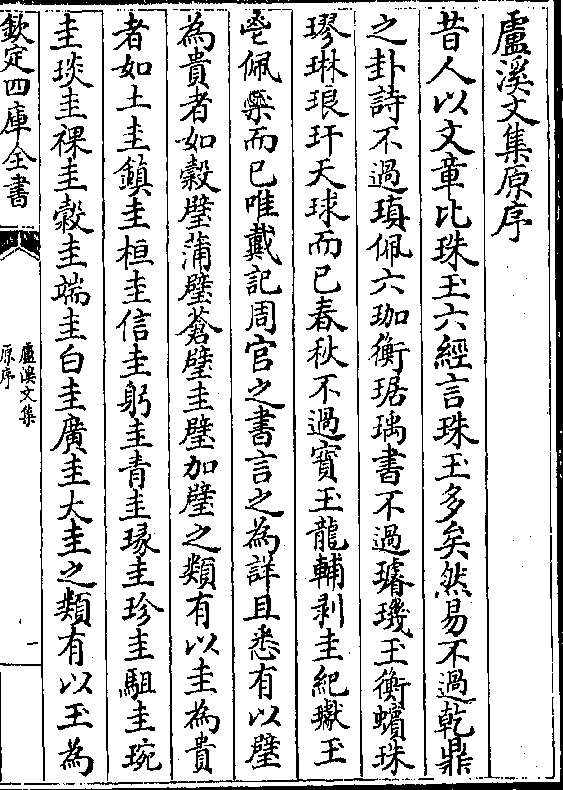 盧溪文集原序
昔人以文章比珠玉六經言珠玉多矣然易不過乾鼎
之卦詩不過瑱佩六珈衡琚瑀書不過璿璣玉衡蠙珠
璆琳琅玕天球而已春秋不過寳玉龍輔剥圭紀甗玉
佩橤而已唯戴記周官之書言之為詳且悉有以璧
為貴者如穀璧蒲璧蒼璧圭璧加璧之類有以圭為貴
者如土圭鎮圭桓圭信圭躬圭青圭瑑圭珍圭駔圭琬
圭琰圭祼圭穀圭端圭白圭廣圭大圭之類有以玉為
欽定四庫全書
盧溪文集
原序
一